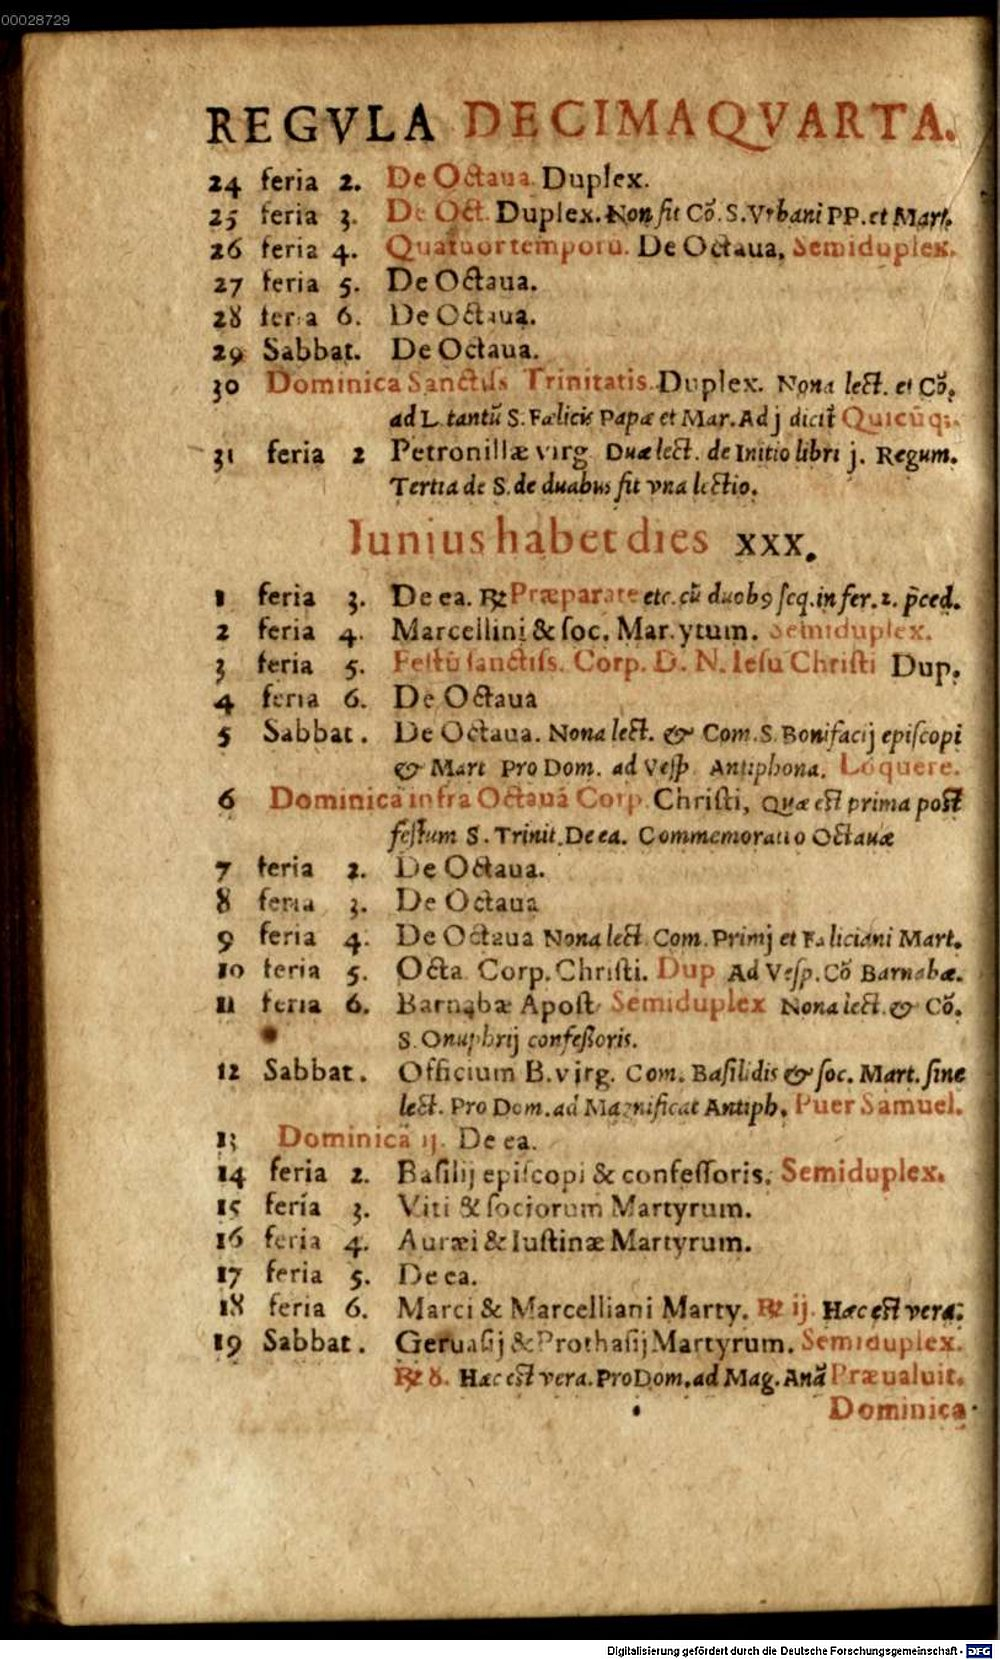 00028729
REGVLA DECIMAQVARTA.
24 feria 2. De Octaua Duplex.
25 feria 3. De Oct. Duplex. Non fit Cō. S. Vrbani PP. et Mart.
26 feria 4. Quatuor temporū. De Octaua, Semiduplex.
27 feria 5. De Octaua.
28 feria 6. De Octaua.
29 Sabbat. De Octaua.
30 Dominica Sanctiss Trinitatis. Duplex. Nona lect. et Cō.
ad L. tantū S. Fælicis Papæ et Mar. Ad j dicit̄ Quicūq;.
31 feria 2 Petronillæ virg Duæ lect. de Initio libri j. Regum.
Tertia de S. de duabus fit vna lectio.
Iunius habet dies xxx.
1 feria 3. De ea. ℞ Præparate etc. cū duobꝰ seq. in fer. 2. p̄ced.
2 feria 4. Marcellini & soc. Mar.ytum. Semiduplex.
3 feria 5. Festū sanctiss. Corp. D. N. Iesu Christi Dup.
4 feria 6. De Octaua
5 Sabbat. De Octaua. Nona lect. & Com. S. Bonifacij episcopi
& Mart Pro Dom. ad Vesp Antiphona. Loquere.
6 Dominica infra Octauā Corp. Christi, Quæ est prima post
festum S. Trinit. De ea. Commemoratio Octauæ
7 feria 2. De Octaua.
8 feria 3. De Octaua
9 feria 4. De Octaua Nona lect Com. Primj et Fæliciani Mart.
10 feria 5. Octa Corp. Christi. Dup Ad Vesp. Cō Barnabæ.
11 feria 6. Barnabæ Apost Semiduplex Nona lect. & Cō.
S. Onuphrij confessoris.
12 Sabbat. Officium B. virg. Com. Basilidis & soc. Mart. sine
lect. Pro Dom. ad Magnificat Antiph. Puer Samuel.
13 Dominica ij. De ea.
14 feria 2. Basilij episcopi & confessoris. Semiduplex.
15 feria 3. Viti & sociorum Martyrum.
16 feria 4. Auræi & Iustinæ Martyrum.
17 feria 5. De ea.
18 feria 6. Marci & Marcelliani Marty. ℞ ij. Hæc est vera:
19 Sabbat. Geruasij & Prothasij Martyrum. Semiduplex.
℞ 8. Hæc est vera. Pro Dom. ad Mag. Anā Præualuit.
Dominica
Digitalisierung gefördert durch die Deutsche Forschungsgemeinschaft - DFG